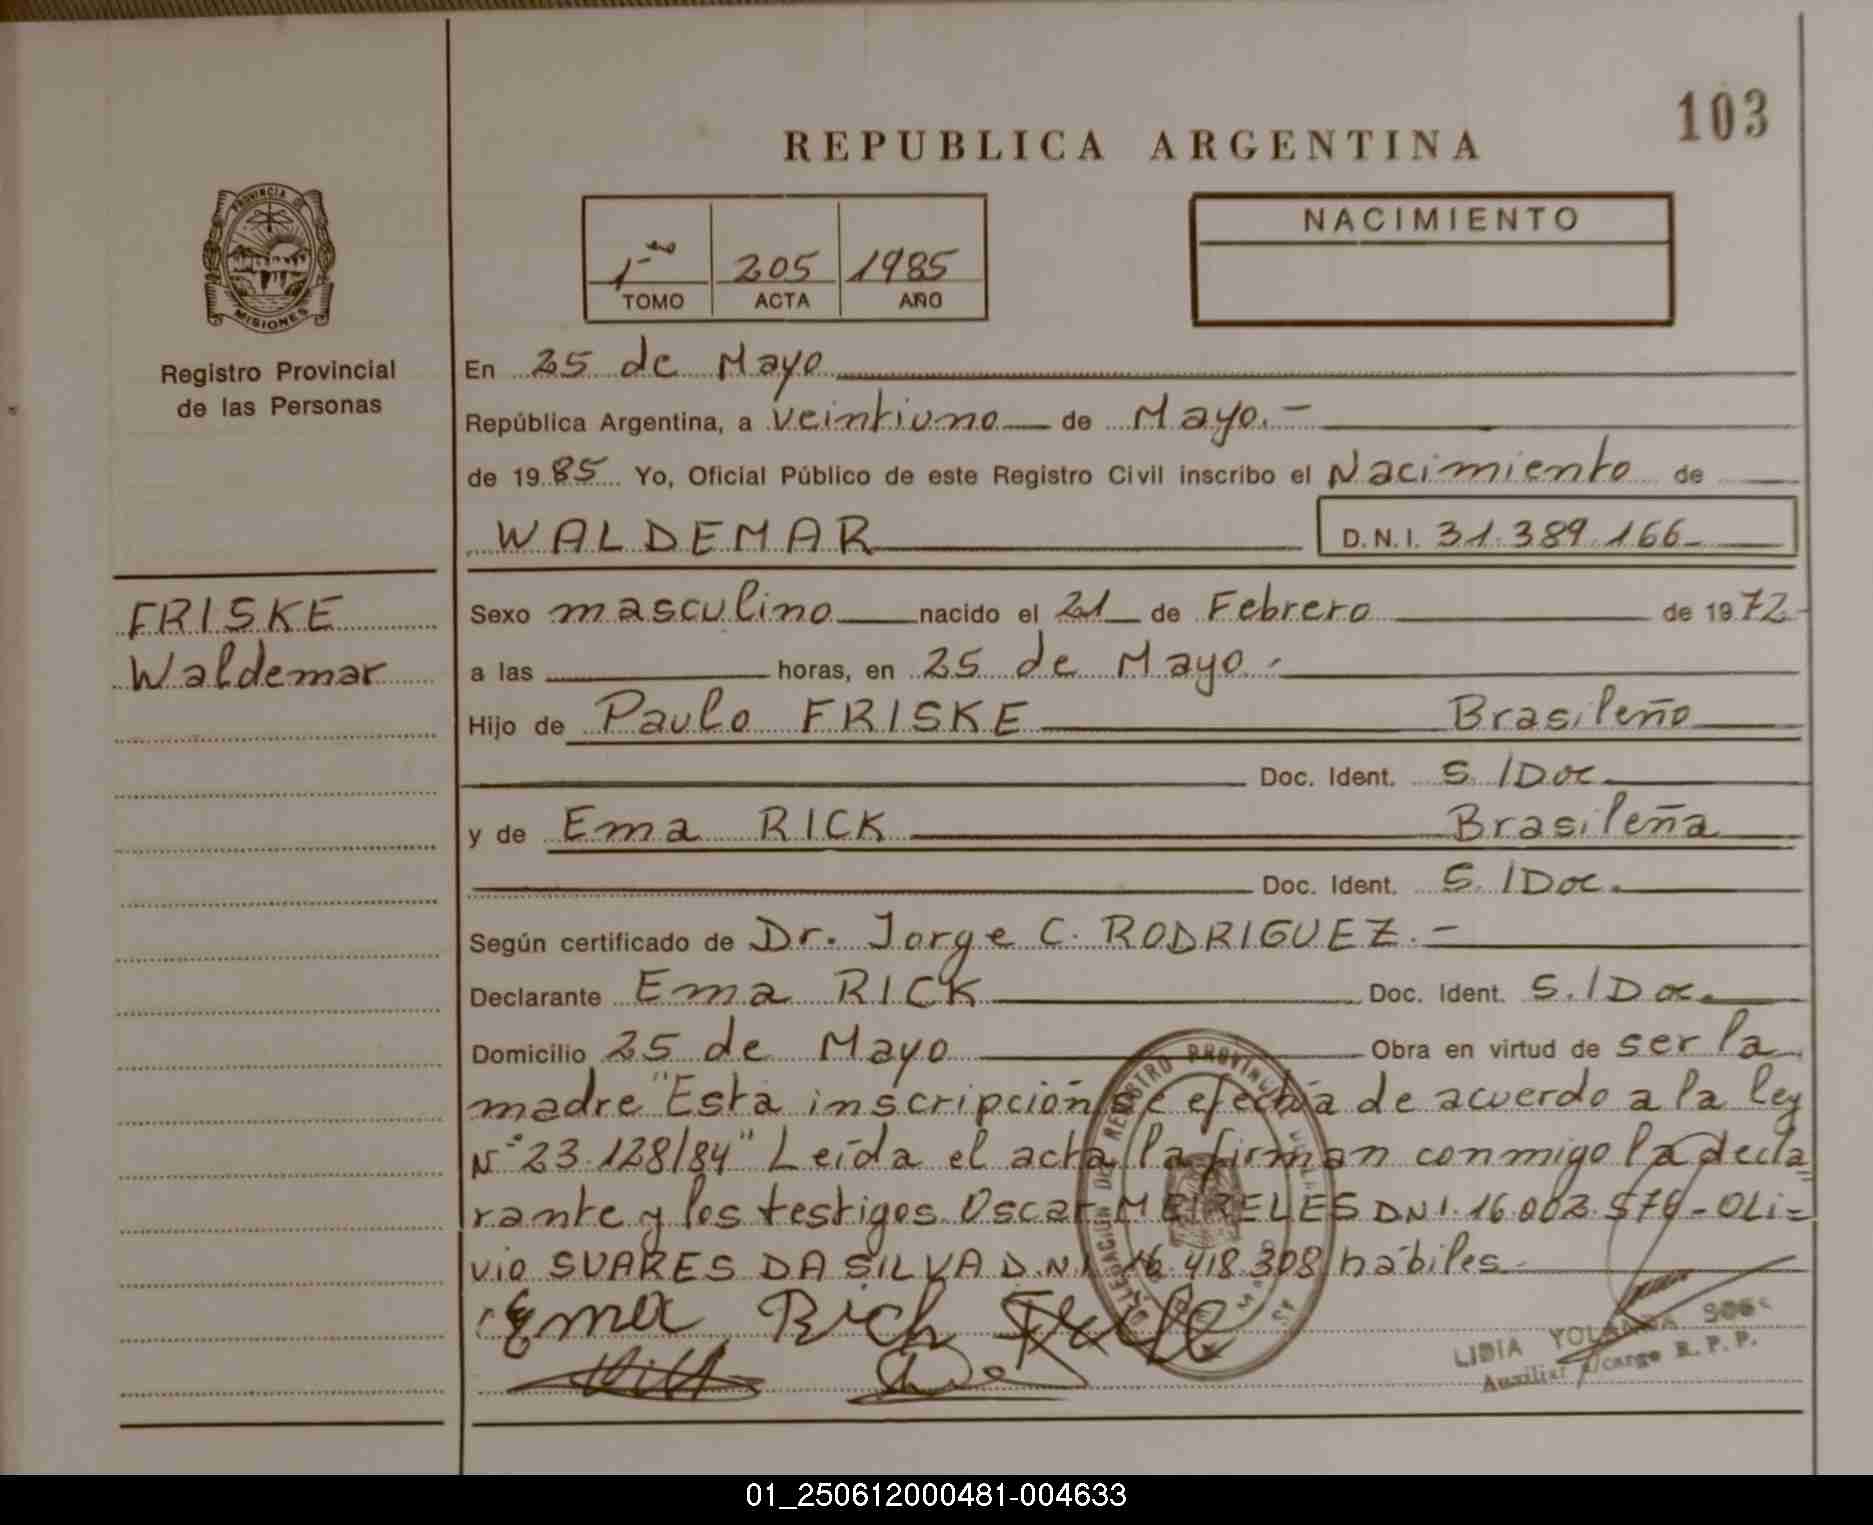 103
REPUBLICA ARGENTINA
PROVINCIA DE
MISIONES
Registro Provincial
de las Personas
1ro 205 1985
TOMO ACTA AÑO
NACIMIENTO
En 25 de Mayo
República Argentina, a veintiuno de Mayo.-
de 1985 Yo, Oficial Público de este Registro Civil inscribo el Nacimiento de
WALDEMAR D.N.I. 31.389.166
FRISKE
Waldemar
Sexo masculino nacido el 21 de Febrero de 1972
a las horas, en 25 de Mayo.-
Hijo de Paulo FRISKE Brasileño
Doc. Ident. S./Doc.
y de Ema RICK Brasileña
Doc. Ident. S./Doc.
Según certificado de Dr. Jorge C. RODRIGUEZ.-
Declarante Ema RICK Doc. Ident. S./Doc.
Domicilio 25 de Mayo Obra en virtud de ser la
madre "Esta inscripción se efectúa de acuerdo a la ley
N° 23.128/84" Leída el acta la firman conmigo la decla
rante y los testigos Oscar MEIRELES DNI. 16.002.579 - OLi=
vio SUARES DA SILVA D.N.I. 16.418.308 hábiles
Ema Rich
DELEGACIÓN DE REGISTRO PROVINCIAL
LIDIA YOLANDA
Auxiliar a/cargo R.P.P.
01_250612000481-004633